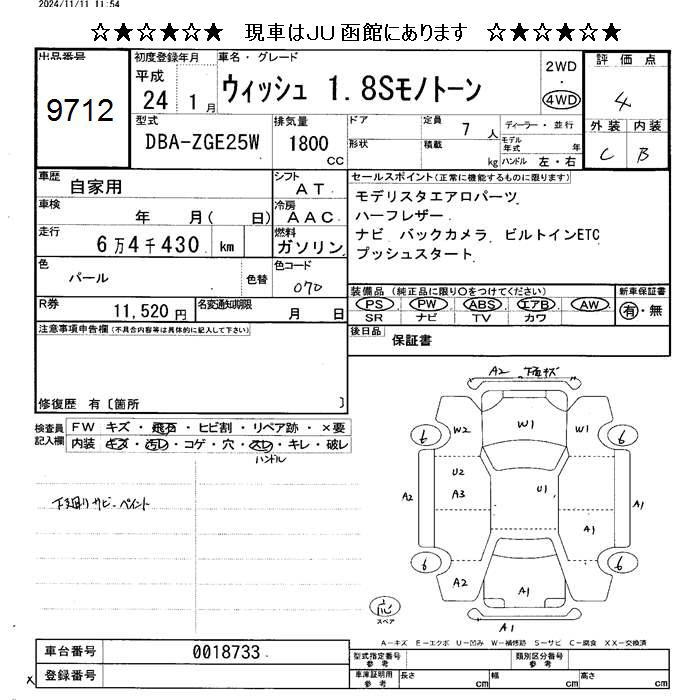 2024/11/11 11:54
☆★☆★☆★ 現車はJU函館にあります ☆★☆★☆★
出品番号
9712
初度登録年月
平成
24 1月
車名・グレード
ウィッシュ 1.8Sモノトーン
2WD
・
4WD
評価点
4
外装 内装
C B
型式
DBA-ZGE25W
排気量
1800
CC
ドア
定員 7人
形状
積載 kg
ディーラー・並行
モデル年式 年
ハンドル 左・右
車歴 自家用
シフト
AT
車検 年 月( 日)
冷房
AAC
走行
6万4千430 km
燃料
ガソリン
色
パール
色替
色コード
070
R券
11,520円
名変通知期限
月 日
セールスポイント(正常に機能するものに限ります)
モデリスタエアロパーツ
ハーフレザー
ナビ バックカメラ ビルトインETC
プッシュスタート
装備品(純正品に限り○をつけてください)
PS PW ABS エアB AW
SR ナビ TV カワ
新車保証書
有・無
後日品
保証書
注意事項申告欄(不具合内容等は具体的に記入して下さい)
修復歴 有〔箇所 〕
検査員
記入欄
FW キズ・飛石・ヒビ割・リペア跡・×要
内装 キズ・汚レ・コゲ・穴・スレ・キレ・破レ
ハンドル
下廻りサビ・ペイント
A2 下面キズ
W2 W1 W1
6 6
U2
A2 A3 U1 A1
A1
6 6
A2 A1
A1
応
スペア
A−キズ E−エクボ U−凹み W−補修跡 S−サビ C−腐食 XX−交換済
車台番号 0018733
登録番号
型式指定番号
参考
類別区分番号
参考
車庫証明用
参考
長さ cm 幅 cm 高さ cm